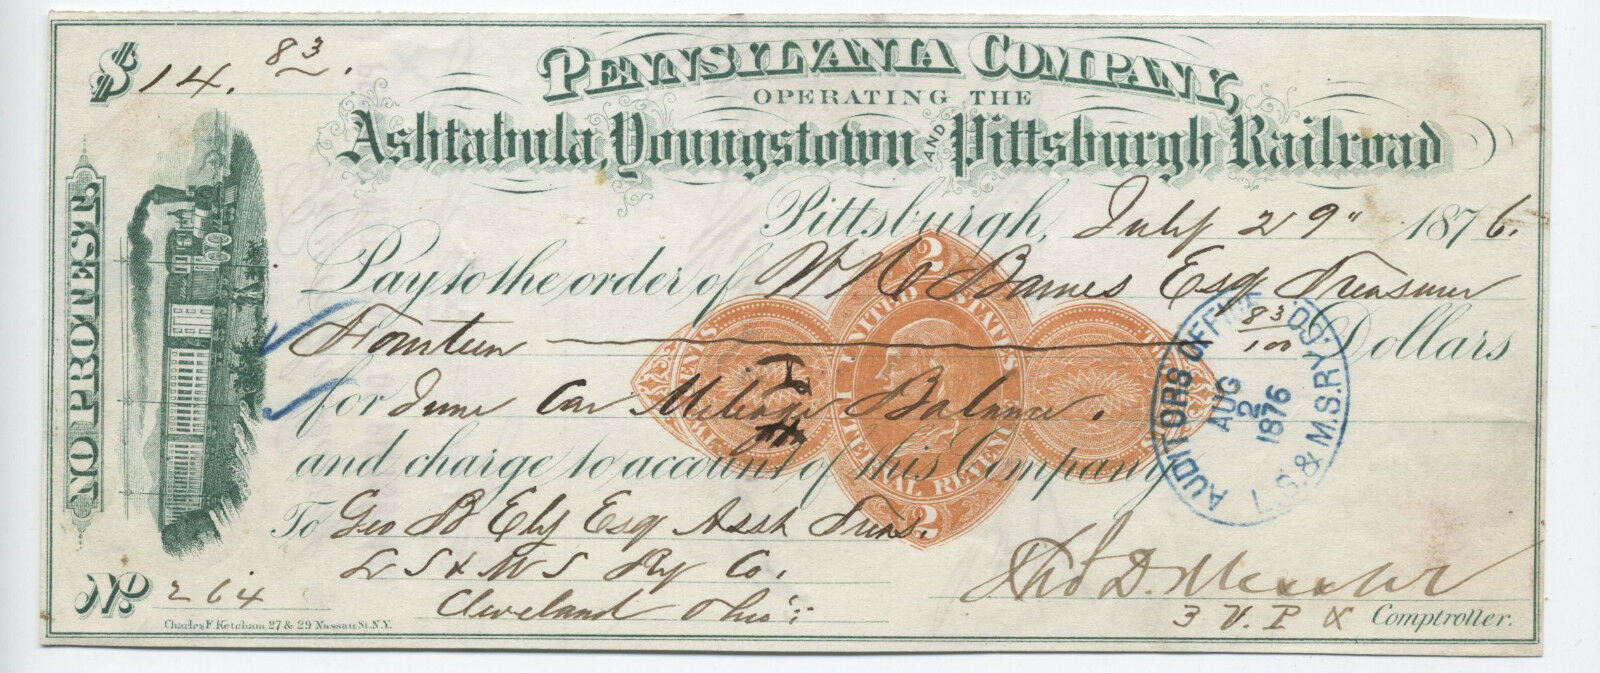 $ 14. 83.
PENNSYLVANIA COMPANY,
OPERATING THE
Ashtabula, Youngstown AND Pittsburgh Railroad
Pittsburgh, July 29" 1876.
Pay to the order of Barnes Esq Treasurer
Fourteen 83/100 Dollars
for June Car Mileage Balance.
and charge to account of this Company
To Geo B Ely Esq Asst Treas.
L S & M S Ry Co.
Cleveland Ohio
Thos D. Messler
3 V. P & Comptroller.
No. 264
Charles F. Ketcham, 27 & 29 Nassau St. N.Y.
NO PROTEST.
2
UNITED STATES
INTERNAL REVENUE
2
TWO CENTS
AUDITORS OFFICE
AUG
2
1876
L.S. & M.S.RY.CO.